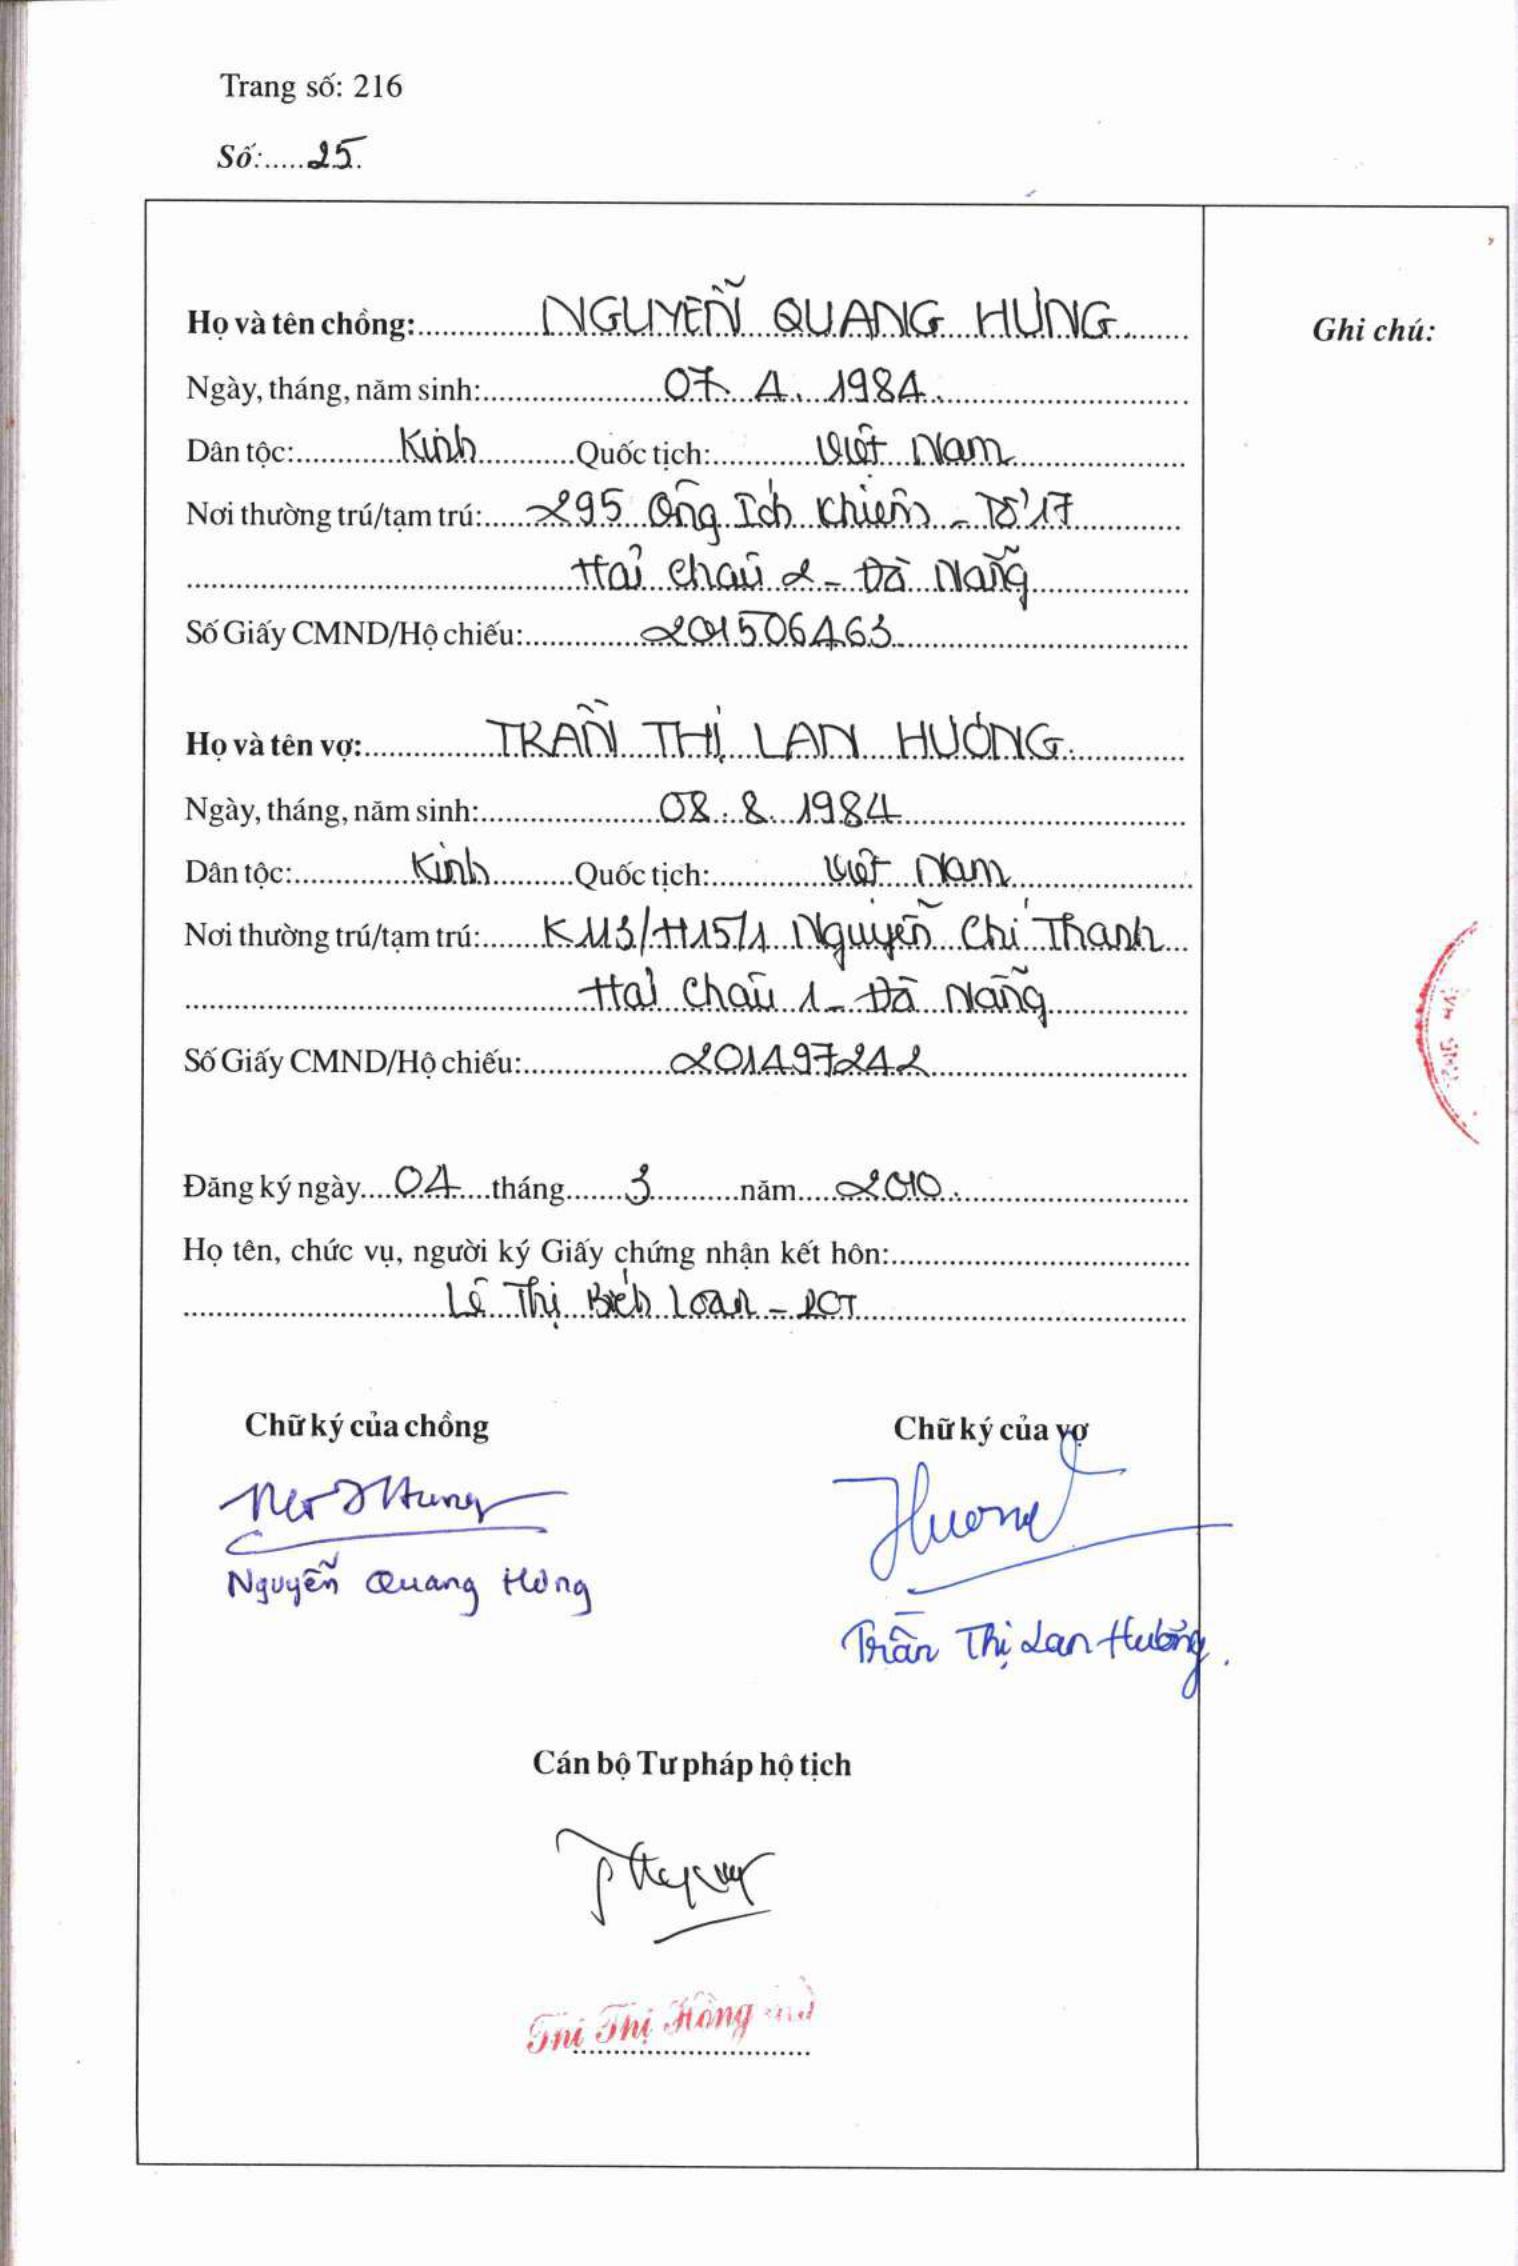 Trang số: 216
Số:.....25.
Họ và tên chồng: NGUYỄN QUANG HƯNG
Ghi chú:
Ngày, tháng, năm sinh: 07. 4. 1984.
Dân tộc: Kinh Quốc tịch: Việt Nam
Nơi thường trú/tạm trú: 295 Ông Ích Khiêm - Tổ 17
Hải Châu 2 - Đà Nẵng
Số Giấy CMND/Hộ chiếu: 201506463
Họ và tên vợ: TRẦN THỊ LAN HƯƠNG
Ngày, tháng, năm sinh: 08. 8. 1984
Dân tộc: Kinh Quốc tịch: Việt Nam
Nơi thường trú/tạm trú: K113/H15/1 Nguyễn Chí Thanh
Hải Châu 1 - Đà Nẵng
Số Giấy CMND/Hộ chiếu: 201497242
Đăng ký ngày 04 tháng 3 năm 2010.
Họ tên, chức vụ, người ký Giấy chứng nhận kết hôn:
Lê Thị Bích Loan - PCT
Chữ ký của chồng
Chữ ký của vợ
Hương
Nguyễn Quang Hưng
Trần Thị Lan Hương.
Cán bộ Tư pháp hộ tịch
Thị Hồng